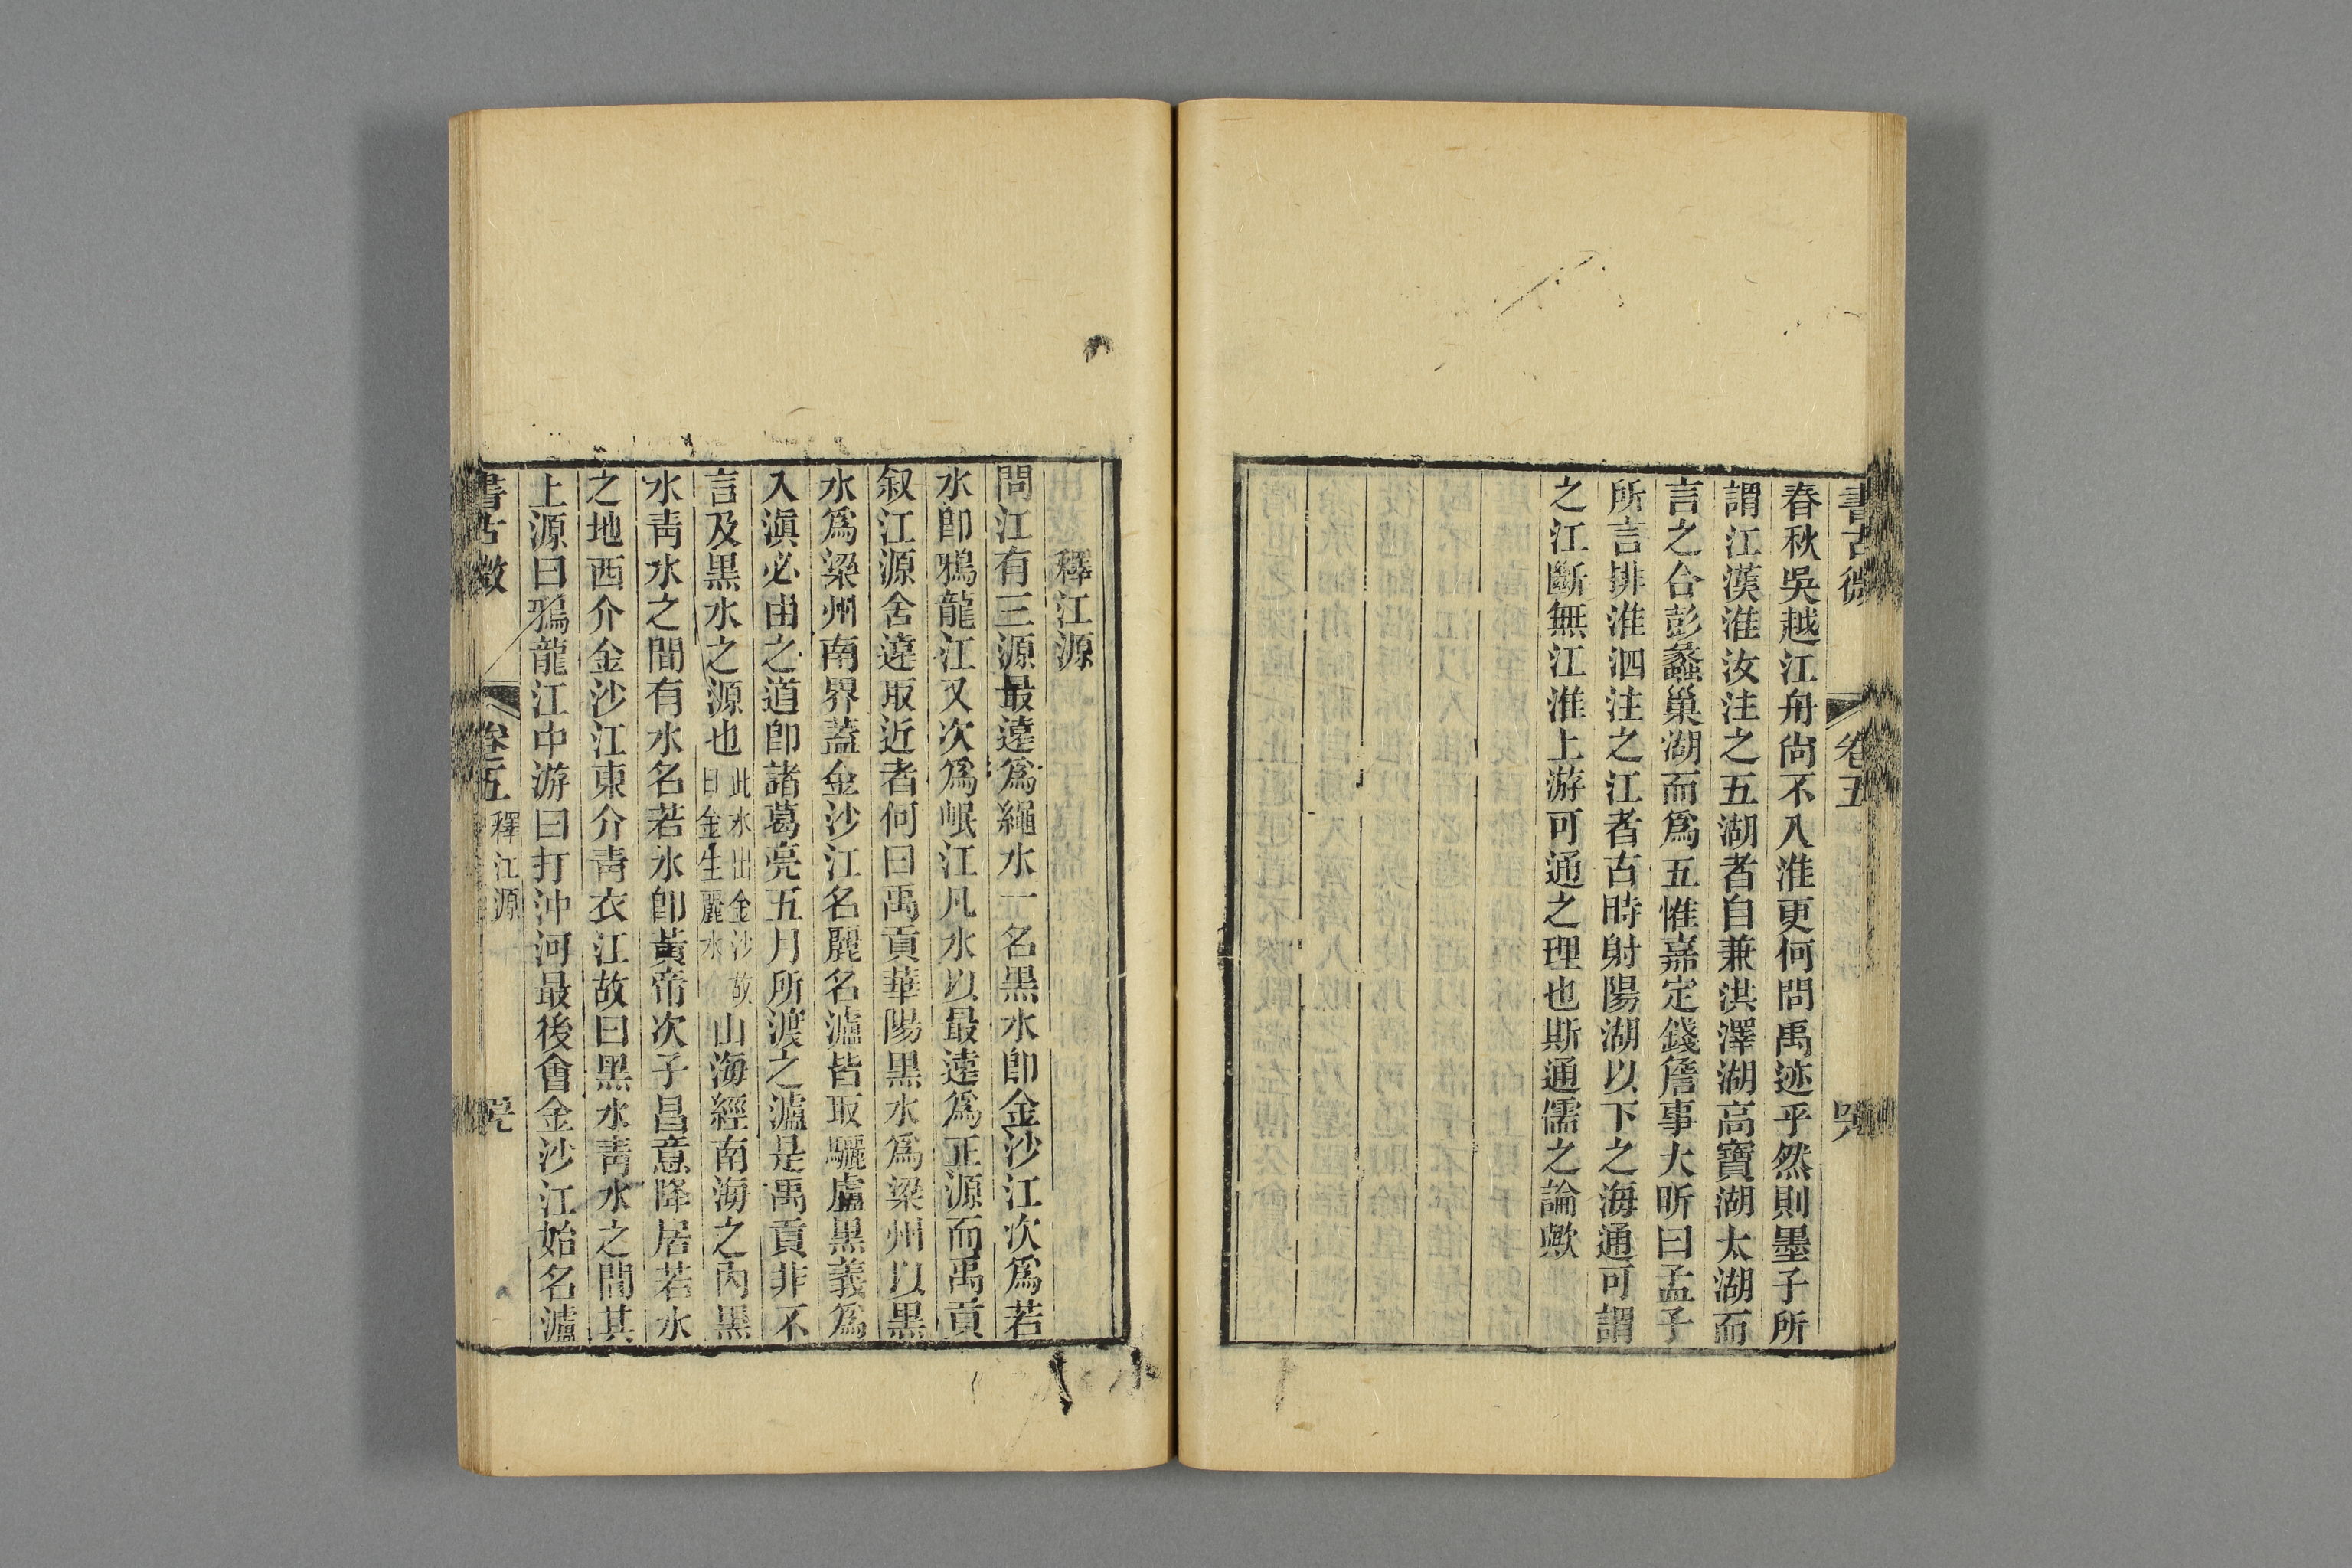 書古微 卷五
春秋吳越江舟尙不入淮更何問禹迹乎然則墨子所
謂江漢淮汝注之五湖者自兼洪澤湖高寶湖太湖而
言之合彭蠡巢湖而爲五惟嘉定錢詹事大昕曰孟子
所言排淮泗注之江者古時射陽湖以下之海通可謂
之江斷無江淮上游可通之理也斯通儒之論歟
釋江源
問江有三源最遠爲繩水一名黑水卽金沙江次爲若
水卽鴉龍江又次爲岷江凡水以最遠爲正源而禹貢
叙江源舍遠取近者何曰禹貢華陽黑水爲梁州以黑
水爲梁州南界蓋金沙江名麗名瀘皆取驪盧黑義爲
入滇必由之道卽諸葛亮五月所渡之瀘是禹貢非不
言及黑水之源也此水出金沙故曰金生麗水山海經南海之內黑
水靑水之間有水名若水卽黃帝次子昌意降居若水
之地西介金沙江東介靑衣江故曰黑水靑水之間其
上源曰鴉龍江中游曰打沖河最後會金沙江始名瀘
書古微 卷五 釋江源